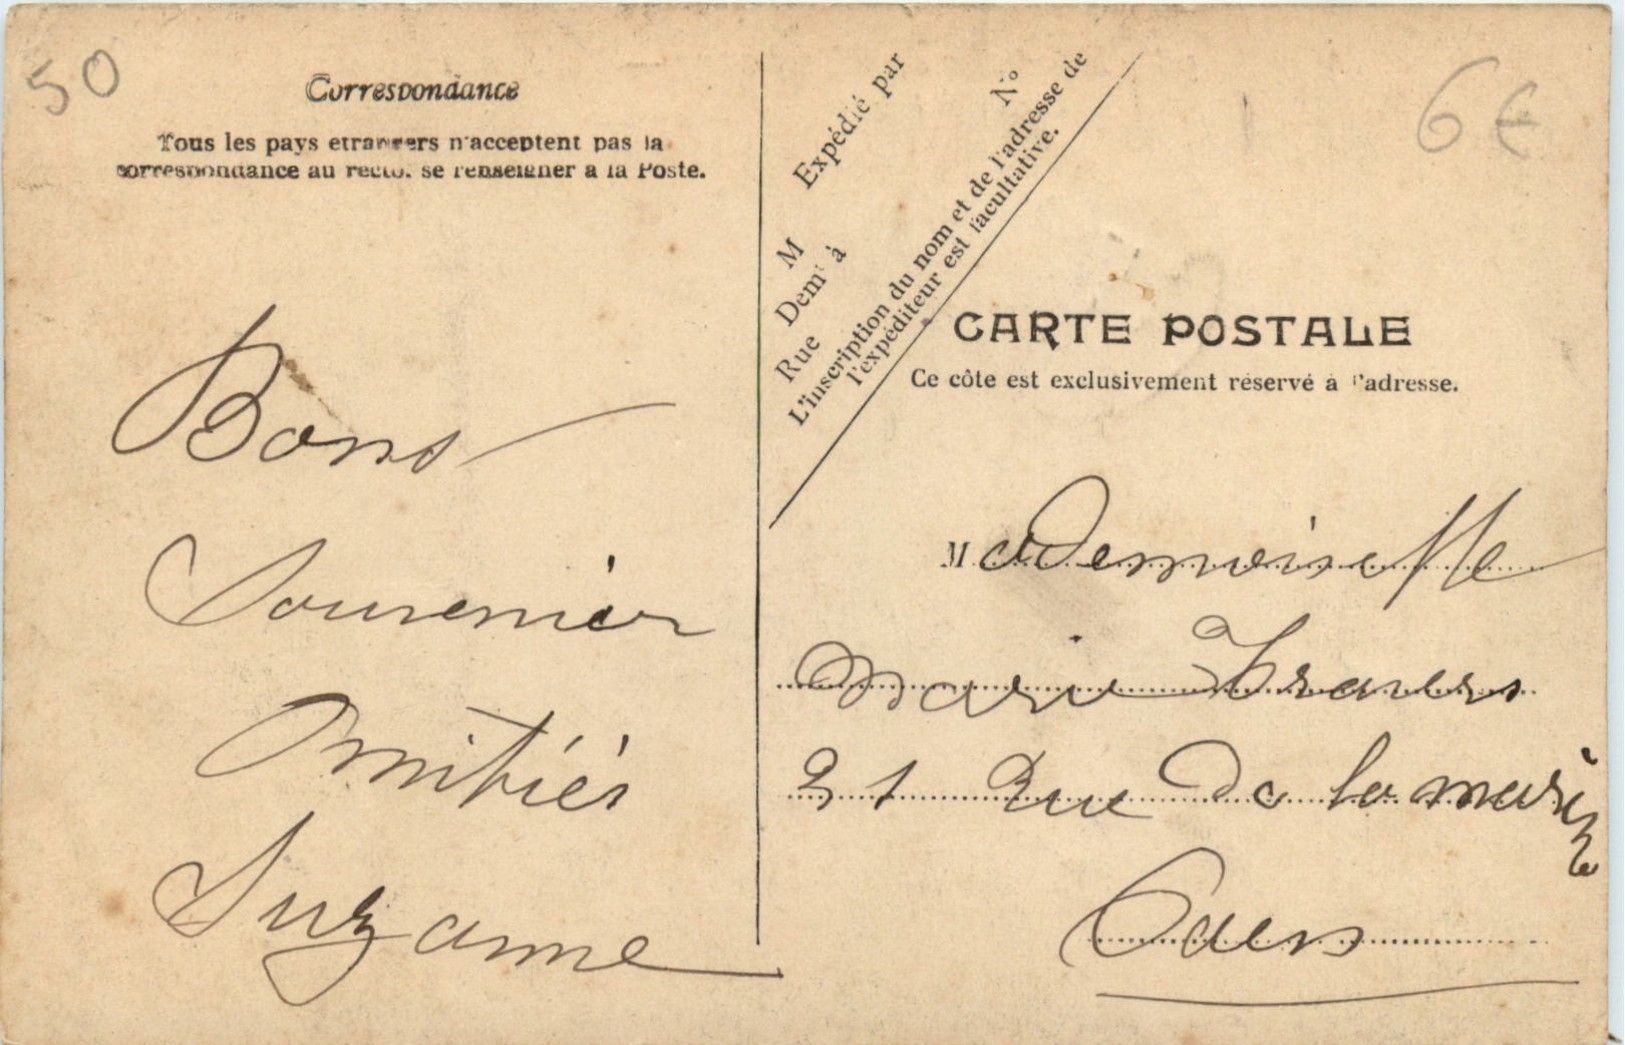 50
Correspondance
Tous les pays etrangers n'acceptent pas la
correspondance au recto. se renseigner a la Poste.
Bons
Souvenir
Amitiés
Suzanne
Expédié par
M
Demt à
N°
Rue
L'inscription du nom et de l'adresse de
l'expéditeur est facultative.
6€
CARTE POSTALE
Ce côte est exclusivement réservé à l'adresse.
Mademoiselle
Marie Travers
21 Rue De la marine
Caen